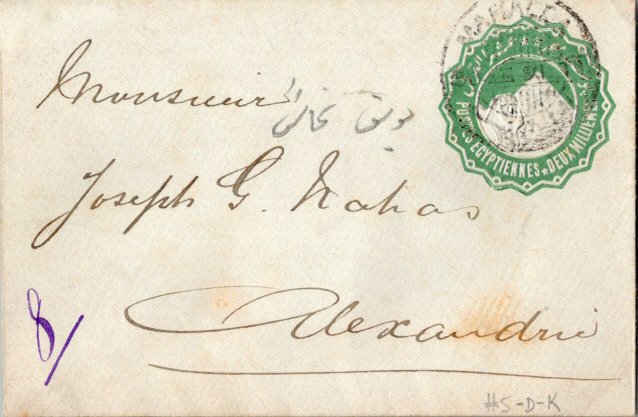 Monsieur
Joseph G. Nahas
Alexandrie
POSTES EGYPTIENNES ★ DEUX MILLIEMES
8/
#5-D-K